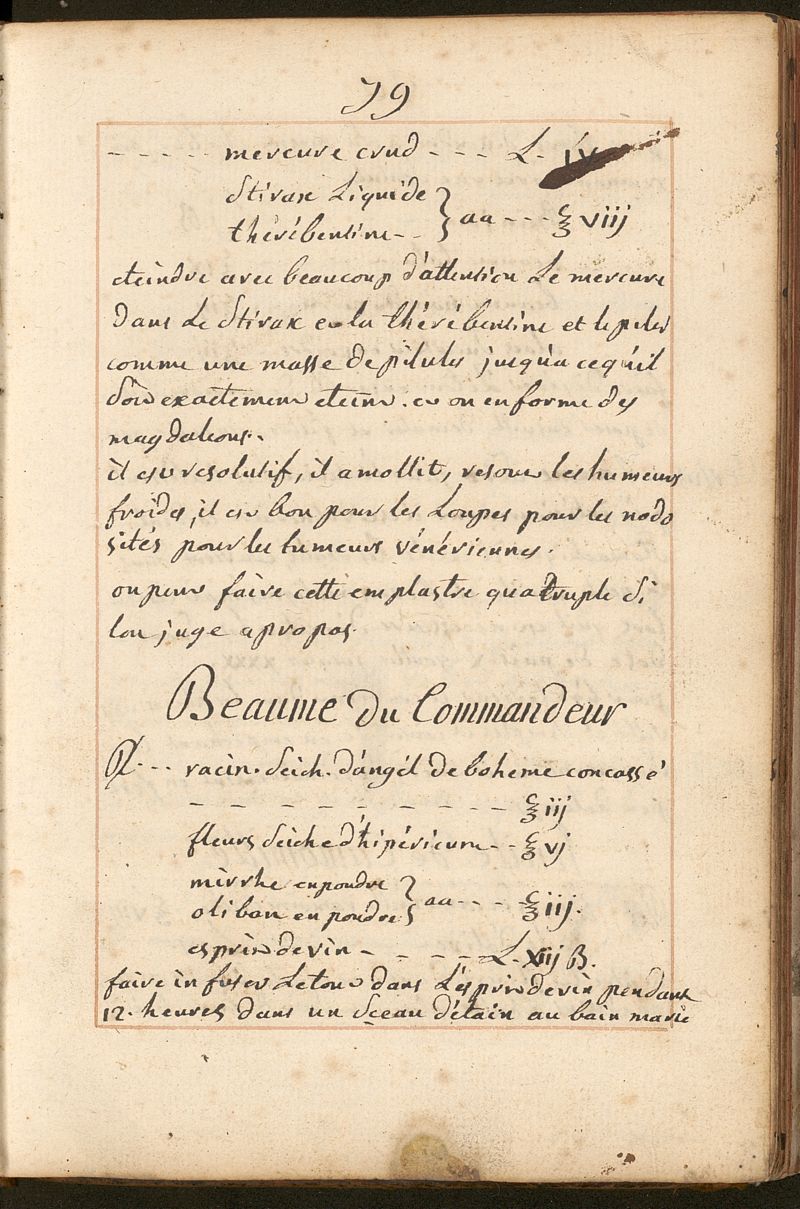 79
- - - - - mercure crud - - - L. iv
Stirax Liquide
thérébentine - - } aa - - - ℥ viij
eteindre avec beaucoup d'attention Le mercure
dans Le Stirax et la thérébentine et le piler
comme une masse de pilules jusqu'a ce qu'il
soit exactement eteint. et on en forme des
magdaleons.
il est resolutif, il amollit, resout les humeurs
froides, il est bon pour les Loupes pour les nodo
sités pour les tumeurs vénériennes.
on peut faire cette emplastre quatruple Si
lon juge apropos.
Beaume du Commandeur
℞ - - - racin. Seich. d'angél de boheme concassé
- - - - - - - - - ℥ iij
fleurs Seiche d'hipéricum - - ℥ vj
mirrhe en poudre
oliban en poudre } aa - - - - ℥ iij.
esprit de vin - - - - - L. xiij ß.
faire infuser Le tout dans L'esprit de vin pendant
12. heures dans un Sceau d'étain au bain marie